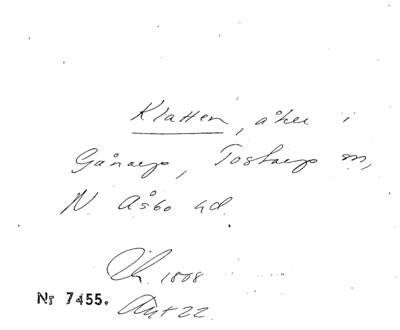 Klatten, åker i
Gånarp, Tostarp sn,
N Åsbo hd
1808
Nr 7455. Akt 22